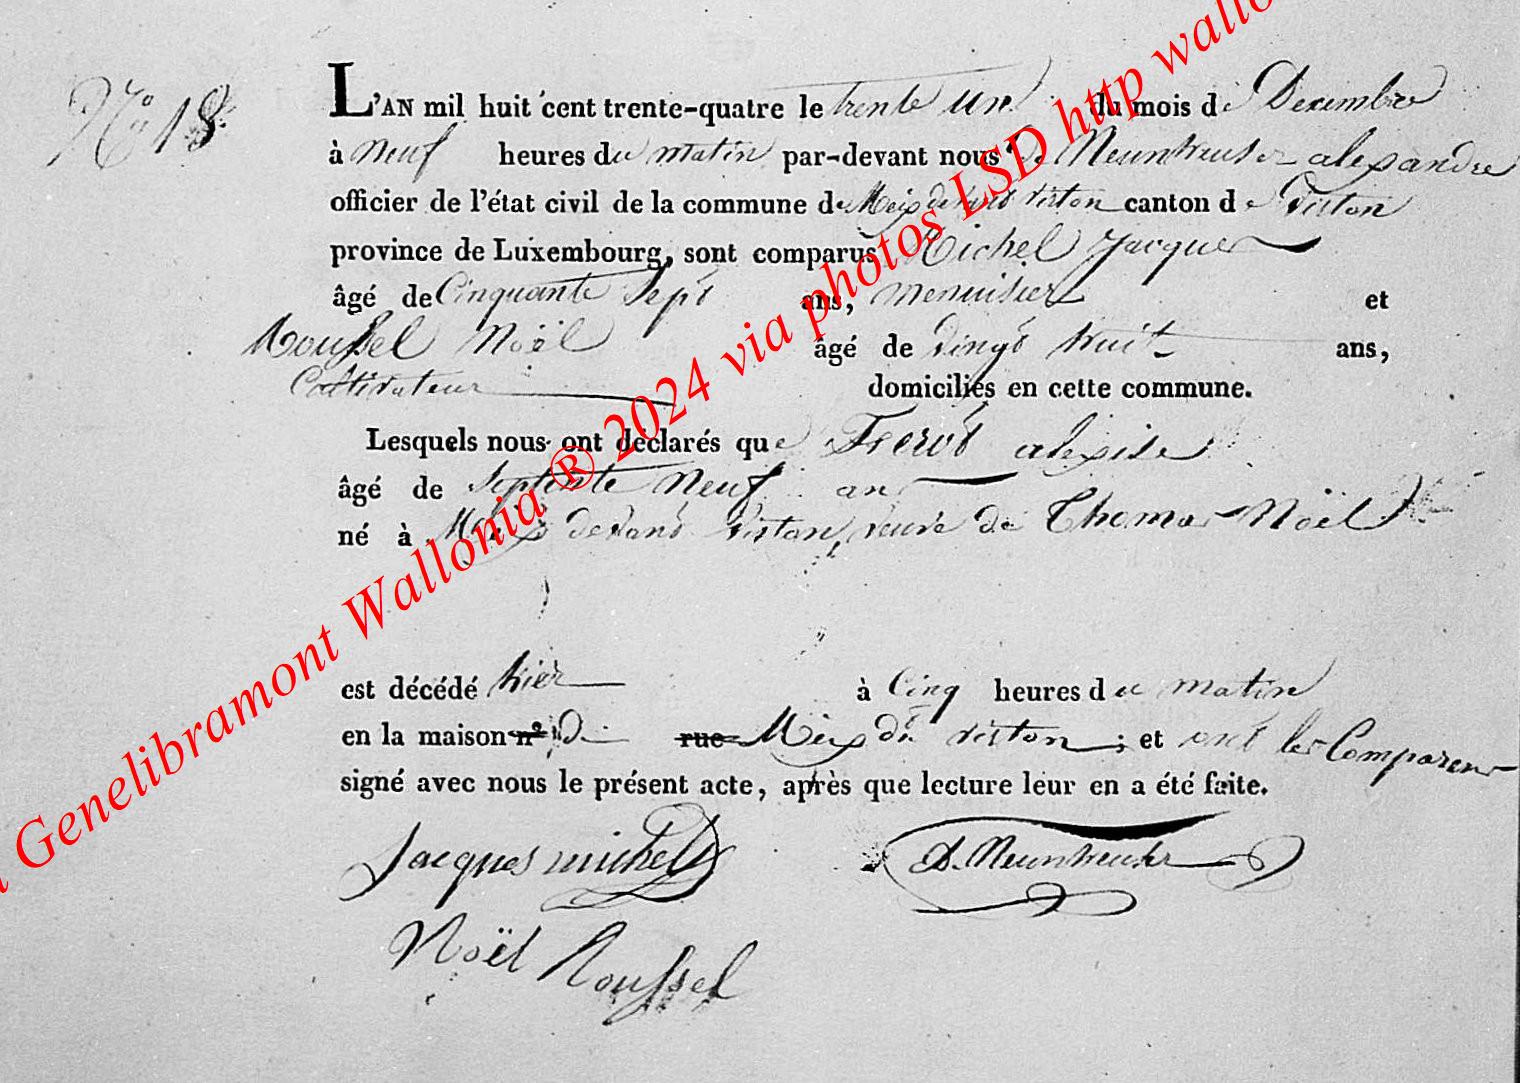 N° 18.
L'AN mil huit cent trente-quatre le trente un du mois de Decembre
à neuf heures du matin par-devant nous de Neunheuser alexandre
officier de l'état civil de la commune de Meix devant virton canton de Virton
province de Luxembourg, sont comparus Michel Jacques
âgé de Cinquante Sept ans, menuisier et
Roussel Noël âgé de vingt huit ans,
Cultivateur domiciliés en cette commune.
Lesquels nous ont déclarés que alexise
âgé de Septente neuf ans
né à Meix devant virton, veuve de Thomas Noël
est décédé hier à Cinq heures du matin
en la maison n° De rue Meix dt virton ; et ont les Comparens
signé avec nous le présent acte, après que lecture leur en a été faite.
Jacques michel A. Neunheuser
Noël Roussel
Genelibramont Wallonia ® 2024 via photos LSD http wallo